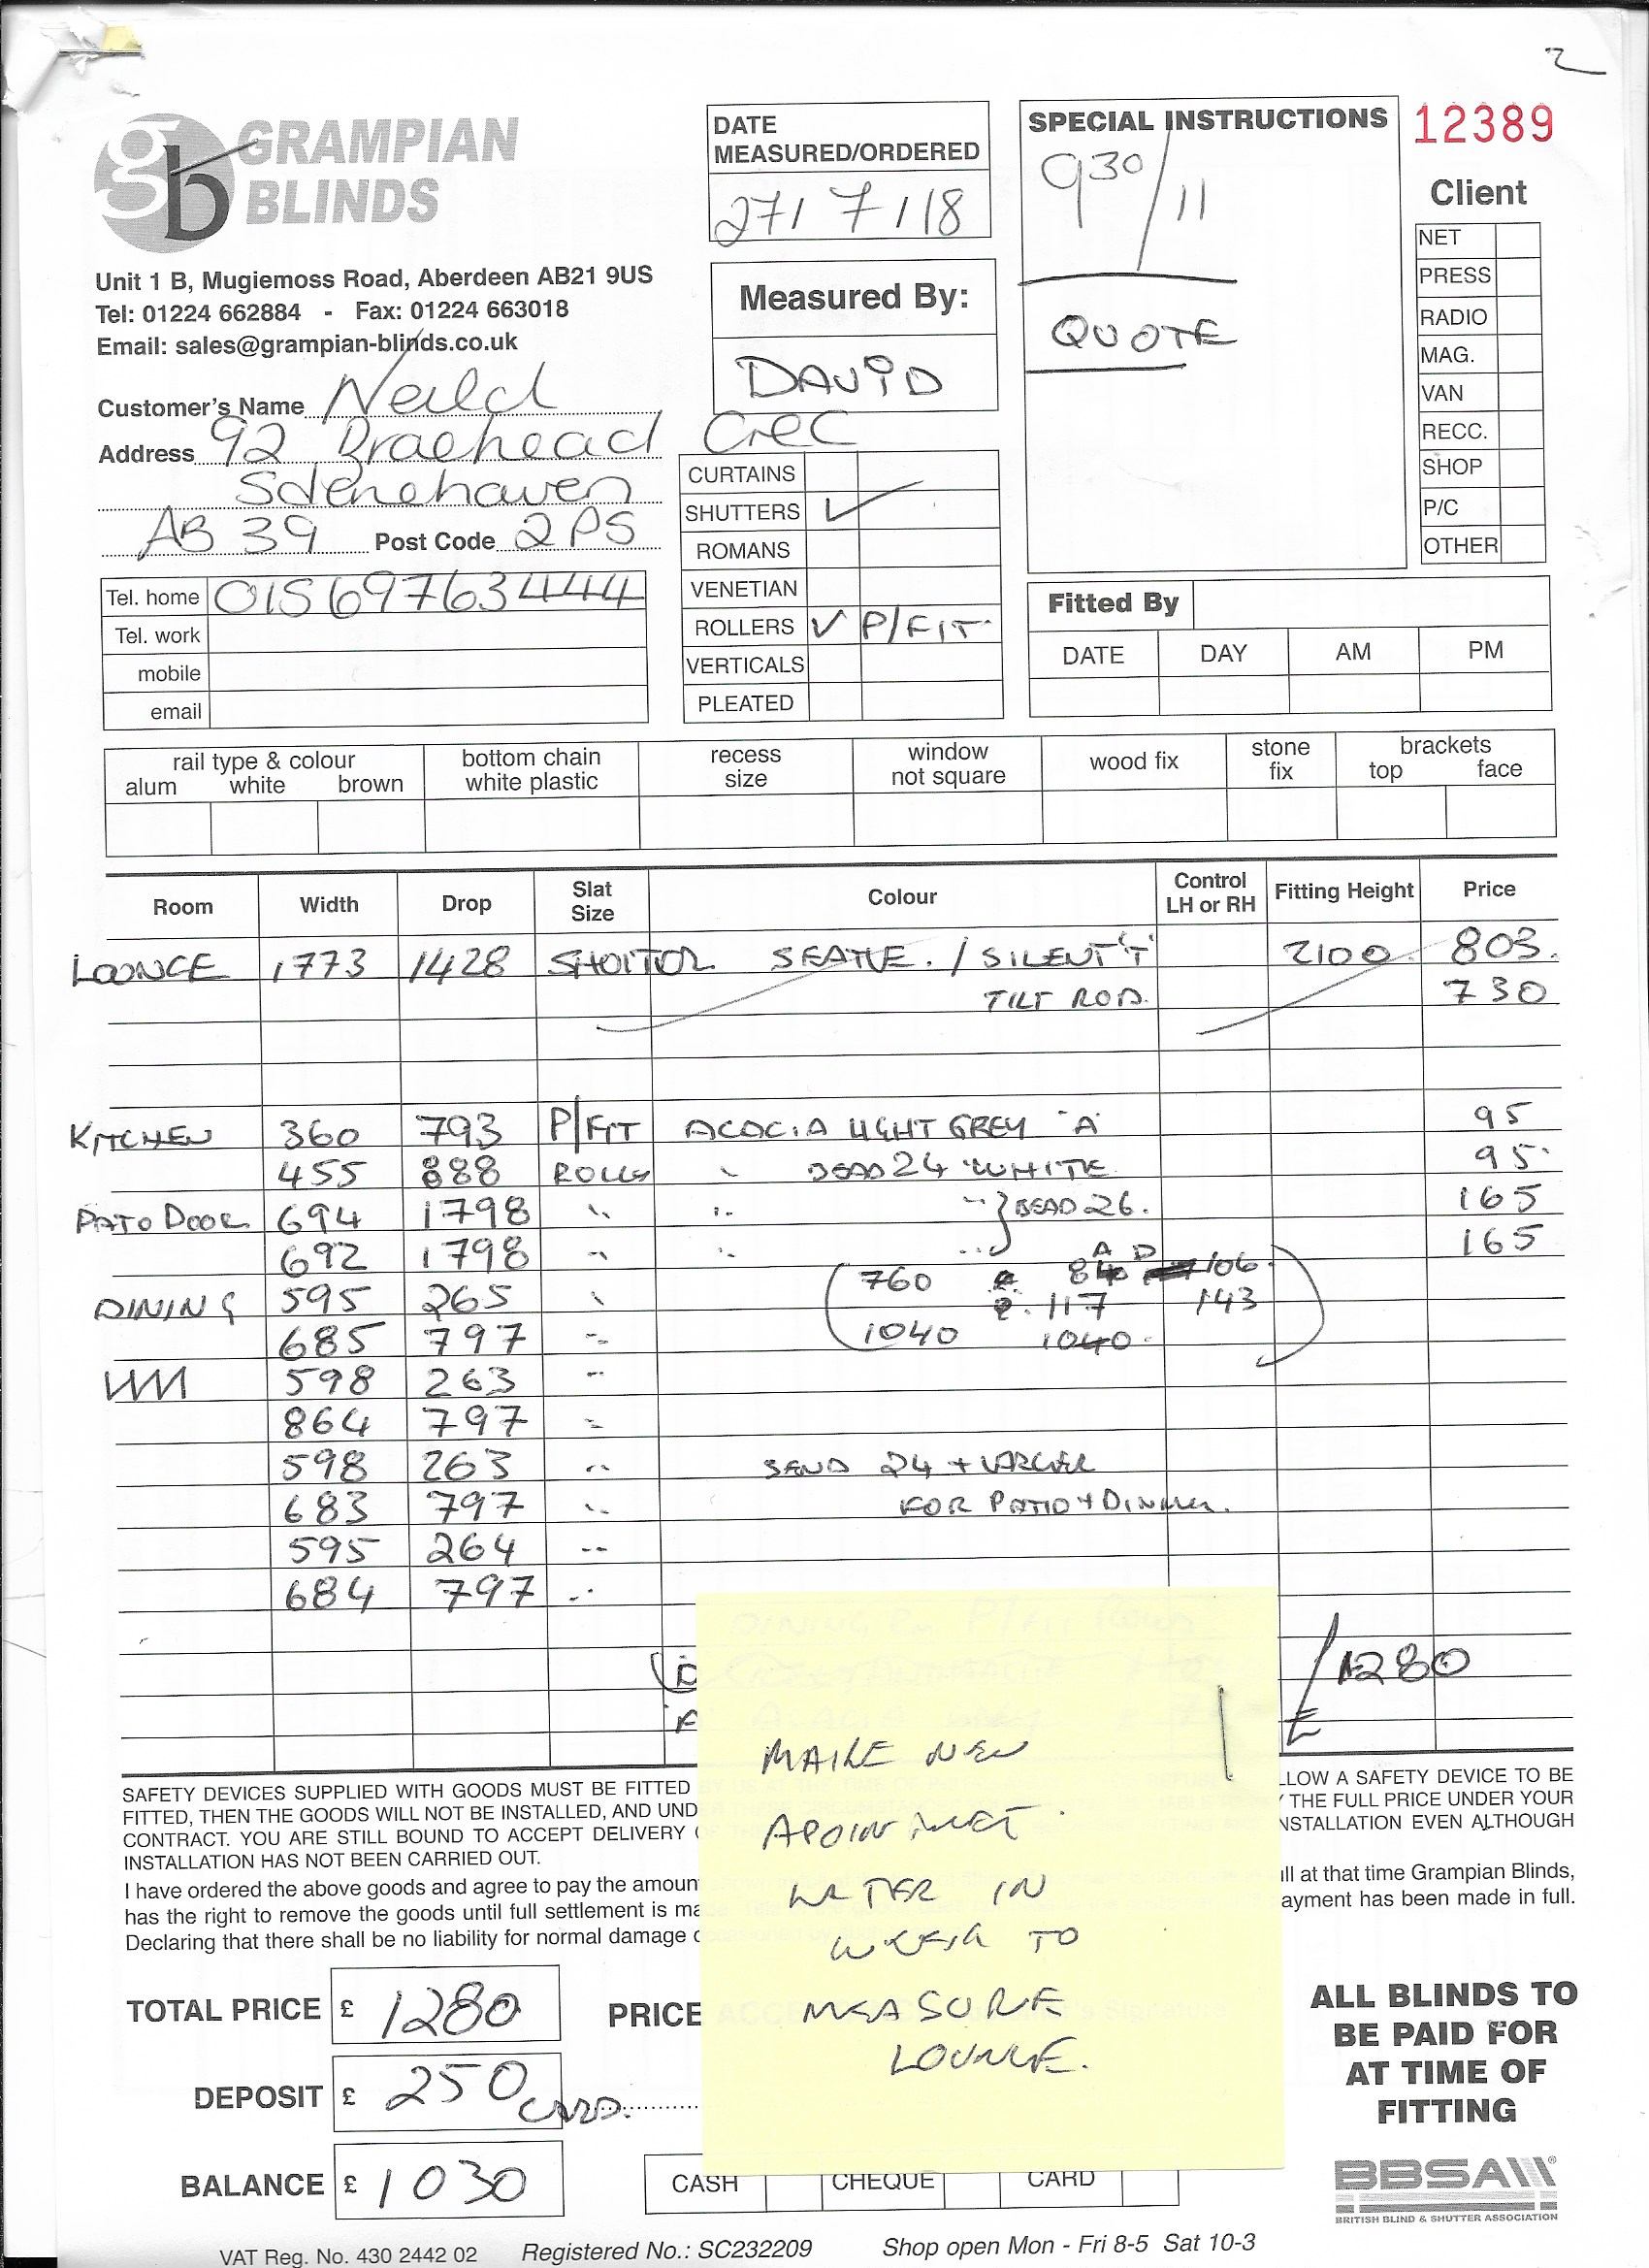 2
GRAMPIAN
BLINDS
Unit 1 B, Mugiemoss Road, Aberdeen AB21 9US
Tel: 01224 662884 - Fax: 01224 663018
Email: sales@grampian-blinds.co.uk
DATE
MEASURED/ORDERED
27/7/18
Measured By:
DAViD
SPECIAL INSTRUCTIONS
9 30 / 11
QUOTE
12389
Client
NET
PRESS
RADIO
MAG.
VAN
RECC.
SHOP
P/C
OTHER
Customer's Name Neild
Address 92 Braehead Crec
Stenehaven
AB 39 Post Code 2PS
Tel. home 01569763444
Tel. work
mobile
email
CURTAINS
SHUTTERS ✓
ROMANS
VENETIAN
ROLLERS ✓ P/FIT
VERTICALS
PLEATED
Fitted By
DATE DAY AM PM
rail type & colour
alum white brown
bottom chain
white plastic
recess
size
window
not square
wood fix
stone
fix
brackets
top face
Room Width Drop Slat Size Colour Control LH or RH Fitting Height Price
LOUNGE 1773 1428 SEATLE. / SILENT 'T' 2100 803.
TILT ROD. 730
KITCHEN 360 793 P/FIT ACACIA LIGHT GREY "A" 95
455 888 BEAD 24 WHITE 95
PATO DOOR 694 1798 BEAD 26. 165
692 1798 165
DINING 595 265 760 A D 84 106
685 797 117 143
1040 1040
598 263
864 797
598 263 SEND 24 + LARGER
683 797 FOR PATIO + DINING.
595 264
684 797
£1280
MAKE NEW
APOINTMET
LATER IN
WEEK TO
MEASURE
LOUNGE.
SAFETY DEVICES SUPPLIED WITH GOODS MUST BE FITTED
LLOW A SAFETY DEVICE TO BE
FITTED, THEN THE GOODS WILL NOT BE INSTALLED, AND UND
THE FULL PRICE UNDER YOUR
CONTRACT. YOU ARE STILL BOUND TO ACCEPT DELIVERY
NSTALLATION EVEN ALTHOUGH
INSTALLATION HAS NOT BEEN CARRIED OUT.
I have ordered the above goods and agree to pay the amoun
ll at that time Grampian Blinds,
has the right to remove the goods until full settlement is ma
ayment has been made in full.
Declaring that there shall be no liability for normal damage
TOTAL PRICE £ 1280
PRICE
DEPOSIT £ 250 CARD.
BALANCE £ 1030
CASH CHEQUE CARD
ALL BLINDS TO
BE PAID FOR
AT TIME OF
FITTING
BBSA
BRITISH BLIND & SHUTTER ASSOCIATION
VAT Reg. No. 430 2442 02 Registered No.: SC232209 Shop open Mon - Fri 8-5 Sat 10-3